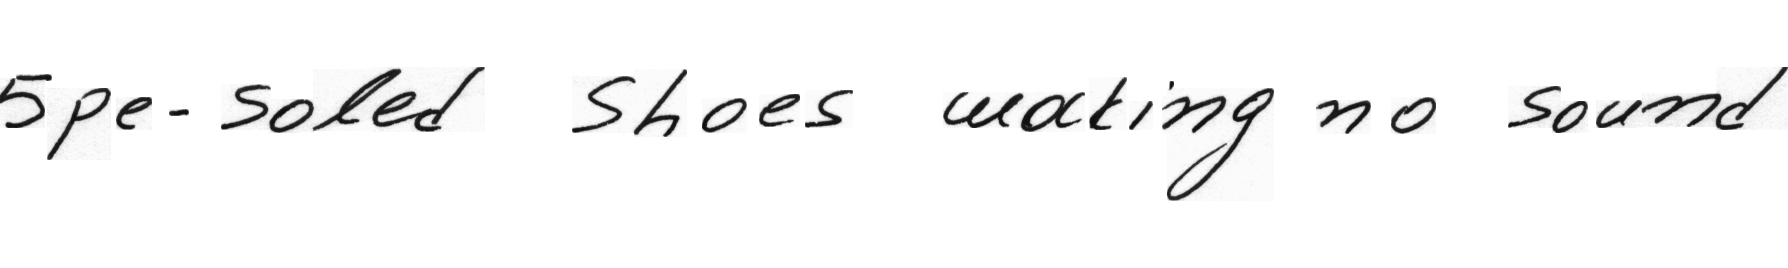 5pe-soled shoes making no sound